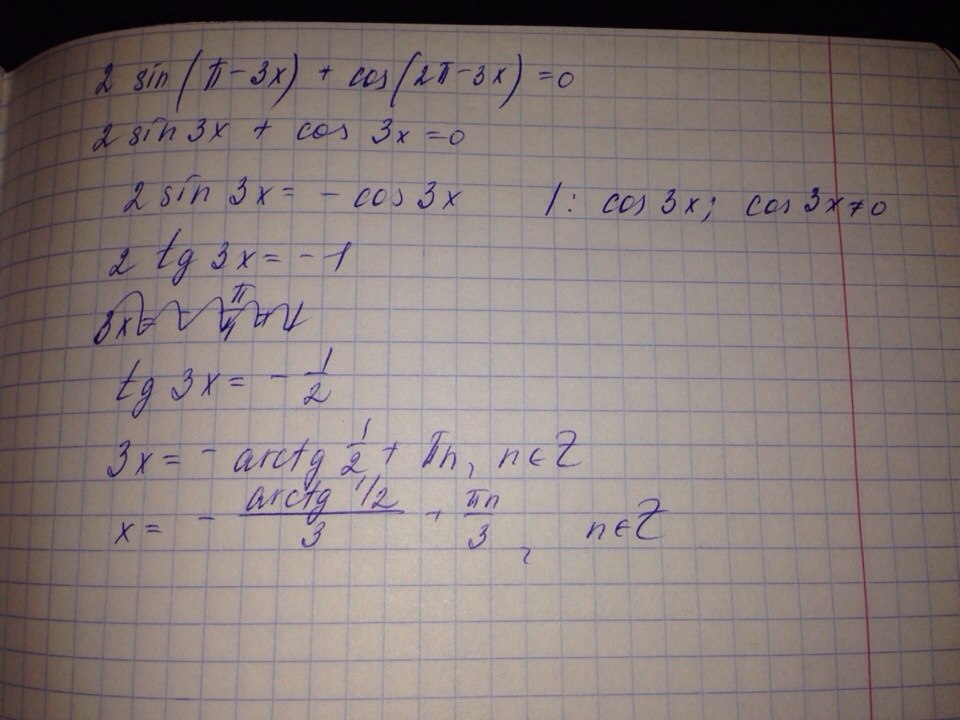 2 sin(π - 3x) + cos(2π - 3x) = 0
2 sin 3x + cos 3x = 0
2 sin 3x = - cos 3x   /: cos 3x; cos 3x ≠ 0
2 tg 3x = - 1
tg 3x = - 1/2
3x = - arctg 1/2 + πn, n ∈ Z
x = - arctg 1/2 / 3 + πn/3, n ∈ Z